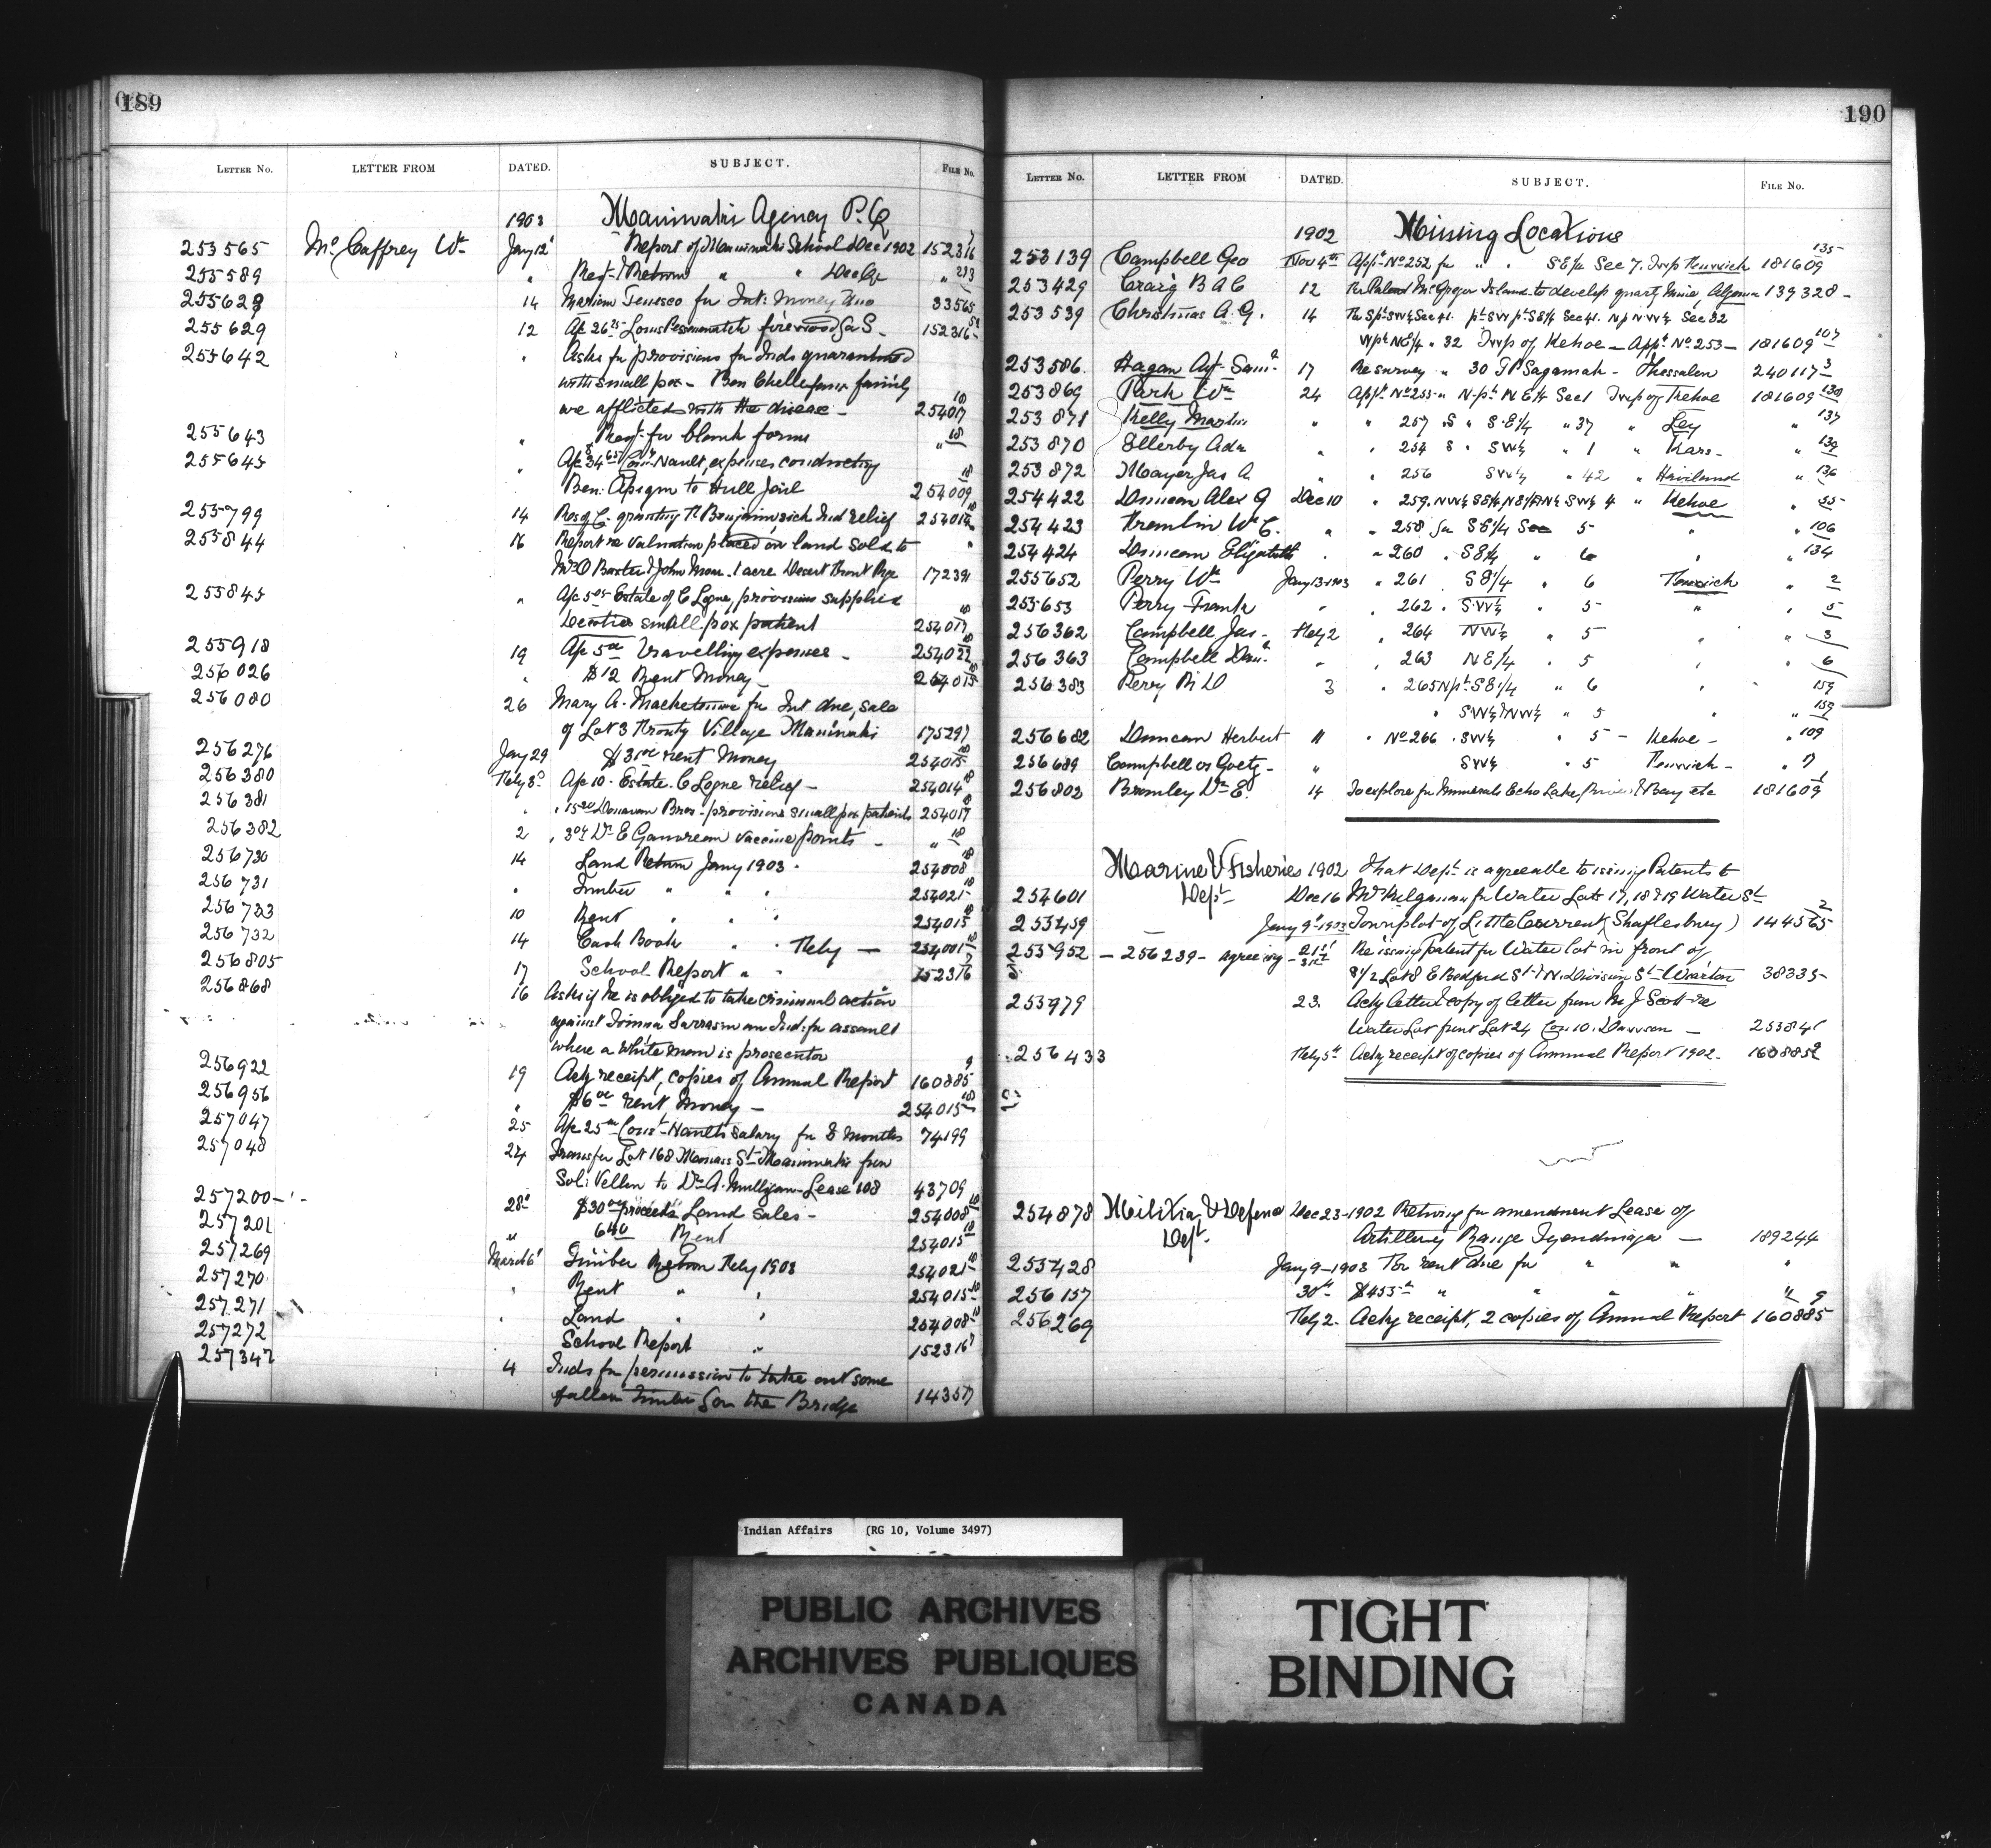 189
LETTER No. LETTER FROM DATED. SUBJECT. FILE No.
1903 Maniwaki Agency P.Q
255565 McCaffrey Wm Jany 12 Report of Maniwaki School Dec 1902 152316
255589 " " " Dec Qr "
255628 14 Int. Money due 33565
255629 12 Ap 26 firewood for S 152316
255642 " Asks for provisions for Inds quarantined
with small pox - Ben Chelle family
are afflicted with the disease - 254017
255643 " Reqn for blank forms " 18
255645 " Ap 34 Const Nault, expenses conducting
Ben. to Hull Jail 254009
255799 14 granting Benjamin sick Ind relief 254014
255844 16 Report re valuation placed on land sold to "
John 1 acre Desert Front Rge 172391
255845 " Ap 5 Estate of C Logue, provisions supplied
small pox patient 254017
255918 19 Ap 5 Travelling expenses - 254022
256026 " $12 Rent Money - 254015
256080 26 Mary A. for Int due, sale
of Lot 3 Village Maniwaki 175297
256276 Jany 29 $3 rent money 254015
256380 Feby 3 Ap 10. Estate C Logue relief - 254014
256381 " " 15 Donovan Bros - provisions small pox patients 254017
256382 2 " 3 Dr E Gauvreau vaccine points - " 18
256730 14 Land Return Jany 1903. 254008
256731 " Timber " " " 254021
256733 10 Rent " " " 254015
256732 14 Cash Book " " Feby - 254001
256805 17 School Report " " 152316
256868 16 Asks if he is obliged to take criminal action
against an Ind. for assault
where a white man is prosecutor
256922 19 Ackg receipt, copies of Annual Report 160885
256956 " $6 rent money - 254015
257047 25 Ap 25 Const Nault's salary for 8 months 74199
257048 24 Transfer Lot 168 St Maniwaki from
to Dr A. Mulligan - Lease 108 43709
257200 28 $30 proceeds Land sales - 254008
257201 " 6 Rent 254015
257269 March 6 Timber Return Feby 1903 254021
257270 " Rent " " 254015
257271 " Land " " 254008
257272 School Report " 152316
257347 4 Inds for permission to take out some
fallen timber for the Bridge 14357
190
LETTER No. LETTER FROM DATED. SUBJECT. FILE No.
1902 Mining Locations
253139 Campbell Geo Nov 4th Appn No 252 for " " SE/4 Sec 7. Twp Fenwick 181609 135
253429 Craig B A C 12 McGregor Island to develop quartz mine, Algoma 139328 -
253539 Christmas A. G. 14 SW¼ Sec 41. pt SW pt SE¼ Sec 41. NW¼ Sec 32
W pt NE/4 " 32 Twp of Kehoe - Appn No 253 - 181609 107
253586. Hagan Agt Saml 17 Re survey " 30 Sagamah - Thessalon 240117 3
253869 Park Wm 24 Appn No 255 " N. pt NE¼ Sec 1 Twp of Kehoe 181609 130
253871 Kelly Martin " " 257 S " SE¼ " 37 " Ley " 137
253870 Ellerby Ada " " 254 S " SW¼ " 1 " Kars - " 139
253872 Mayer Jas A. " " 256 SW¼ " 42 " Haviland " 136
254422 Duncan Alex G Dec 10 " 259. SW¼ 4 " Kehoe " 35
254423 Kremlin Wm C. " " 258 for SE¼ Sec 5 " " 106
254424 Duncan Elizabeth " " 260 " SE¼ " 6 " " 134
255652 Perry Wm Jany 13-1903 " 261 SE¼ " 6 Fenwick " 2
255653 Perry Frank " " 262 " SW¼ " 5 " " 5
256362 Campbell Jas - Feby 2 " 264 NW¼ " 5 " " 3
256363 Campbell Danl " " 263 NE¼ " 5 " " 6
256383 Perry R D 3 " 265 N pt SE¼ " 6 " 159
" SW¼ NW¼ " 5 " " 159
256682 Duncan Herbert 11 " No 266 " SW¼ " 5 - Kehoe - " 109
256689 Campbell vs Goetz - " SW¼ " 5 Fenwick - " 7
256802 Bromley Dr E. 14 To explore for minerals Echo Lake, River & Bay etc 181609 1
Marine & Fisheries 1902 That Dept is agreeable to issuing Patents to
254601 Dept Dec 16 for Water Lots 17, 18 & 19 Water St
255459 Jany 9 1903 Townplot of Little Current (Shaftesbury) 144565 2
255952 - 256239 - agreeing - Re issuing patent for Water lot in front of
Lot 8 E Bedford St & N. Division St Wiarton 38335 -
255979 23 Ackg letter & copy of letter from Mr J Scott re
Water Lot front Lot 24 Con 10. - 25384
256433 Feby 5th Ackg receipt of copies of Annual Report 1902 - 160885 9
254878 Militia & Defence Dec 23-1902 Retwing for amendment Lease of
Dept. Artillery Range Tyendinaga - 189244
255428 Jany 9-1903 For rent due for " " "
256157 30th $455 " " " " "
256269 Feby 2 - Ackg receipt, 2 copies of Annual Report 160885 9
Indian Affairs (RG 10, Volume 3497)
PUBLIC ARCHIVES
ARCHIVES PUBLIQUES
CANADA
TIGHT
BINDING